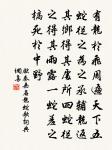 有龍於飛周遍天下五
蛇從之為之丞輔龍反
其鄉得其處所四蛇從
之得其露雨一蛇羞之
槁死於中野
先秦無名龍蛇歌詞典